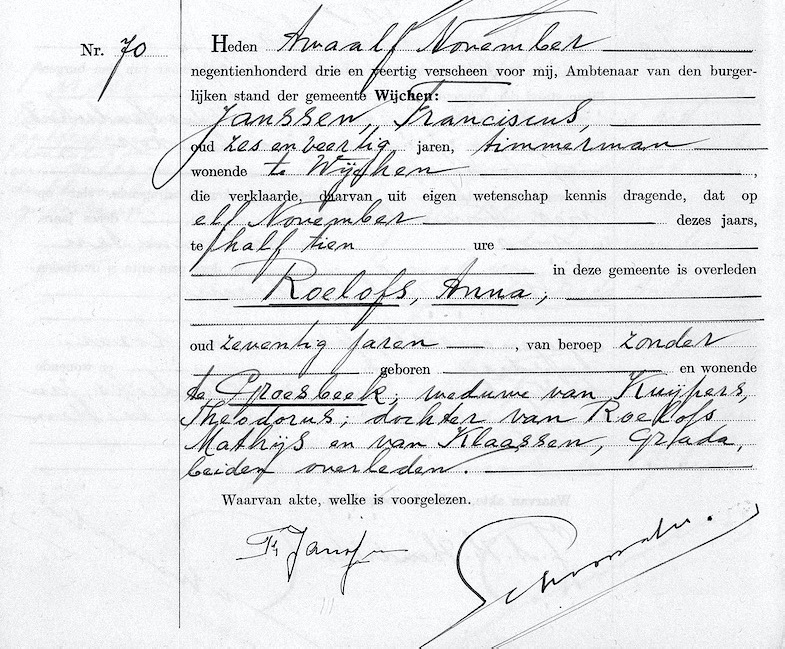 Nr. 70
Heden twaalf November
negentienhonderd drie en veertig verscheen voor mij, Ambtenaar van den burger-
lijken stand der gemeente Wijchen:
Janssen, Franciscus,
oud zes en veertig jaren, timmerman
wonende te Wijchen ,
die verklaarde, daarvan uit eigen wetenschap kennis dragende, dat op
elf November dezes jaars,
te half tien ure
in deze gemeente is overleden
Roelofs, Anna,
oud zeventig jaren , van beroep zonder
geboren en wonende
te Groesbeek, weduwe van Kuijpers,
Theodorus; dochter van Roelofs
Mathijs en van Klaassen, Grada,
beiden overleden.
Waarvan akte, welke is voorgelezen.
Fr Janssen